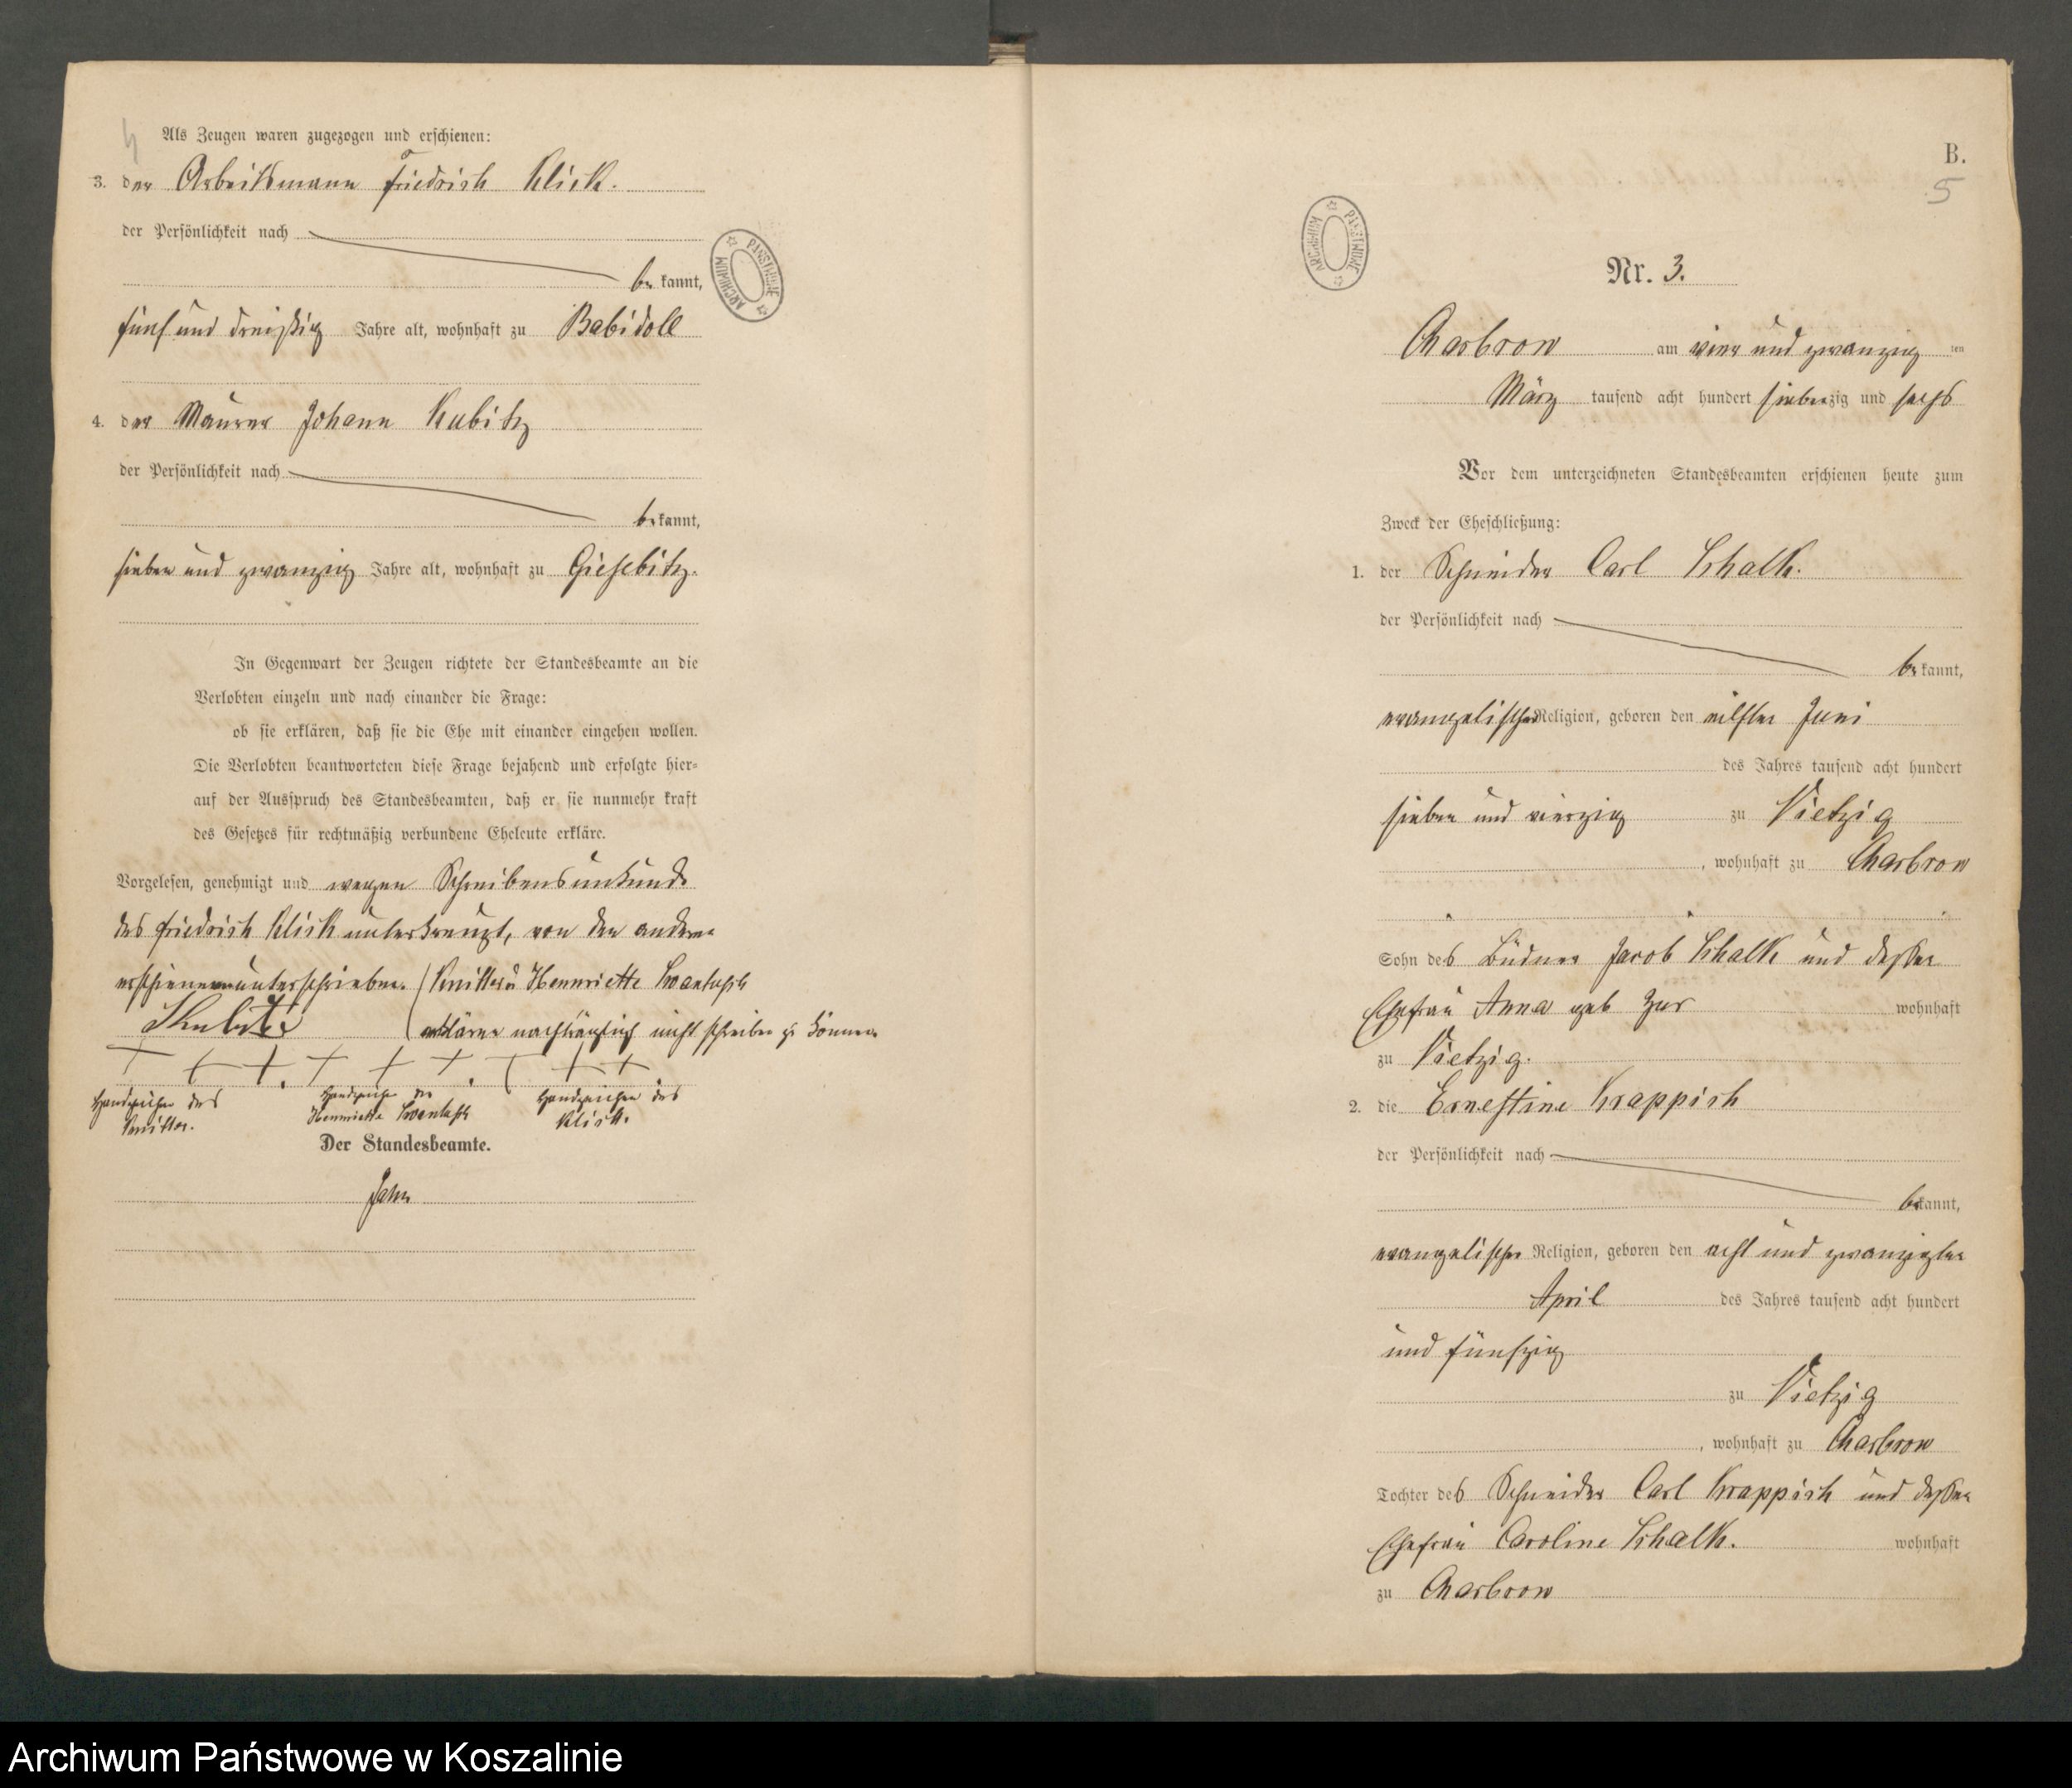 4
Als Zeugen waren zugezogen und erschienen:
3. der Arbeitsmann Friedrich Klick.
der Persönlichkeit nach
bekannt,
fünf und dreißig Jahre alt, wohnhaft zu Babidoll
4. der Maurer Johann Kubitz
der Persönlichkeit nach
bekannt,
sieben und zwanzig Jahre alt, wohnhaft zu Giesebitz.
In Gegenwart der Zeugen richtete der Standesbeamte an die
Verlobten einzeln und nach einander die Frage:
ob sie erklären, daß sie die Ehe mit einander eingehen wollen.
Die Verlobten beantworteten diese Frage bejahend und erfolgte hier-
auf der Ausspruch des Standesbeamten, daß er sie nunmehr kraft
des Gesetzes für rechtmäßig verbundene Eheleute erkläre.
Vorgelesen, genehmigt und wegen Schreibensunkunde
des Friedrich Klick unterkreuzt, von den anderen
erschienenen unterschrieben. (Knitter u Hennriette
erklären nachträglich nicht schreiben zu können.
Handzeichen des Knitter.
Handzeichen der Hennriette
Handzeichen des Klick.
Der Standesbeamte.
Jahn
ARCHIWUM PAŃSTWOWE
B.
5
ARCHIWUM PAŃSTWOWE
Nr. 3.
Charbrow am vier und zwanzig ten
März tausend acht hundert siebenzig und sechs
Vor dem unterzeichneten Standesbeamten erschienen heute zum
Zweck der Eheschließung:
1. der Schneider Carl Schalk.
der Persönlichkeit nach
bekannt,
evangelischer Religion, geboren den eilften Juni
des Jahres tausend acht hundert
sieben und vierzig zu Vietzig
, wohnhaft zu Charbrow
Sohn des Büdner Jacob Schalk und dessen
Ehefrau Anna geb Zur wohnhaft
zu Vietzig.
2. die Ernestine Krappich
der Persönlichkeit nach
bekannt,
evangelischer Religion, geboren den acht und zwanzigsten
April des Jahres tausend acht hundert
und fünfzig
zu Vietzig
, wohnhaft zu Charbrow
Tochter des Schneider Carl Krappich und dessen
Ehefrau Caroline Schalk. wohnhaft
zu Charbrow
Archiwum Państwowe w Koszalinie